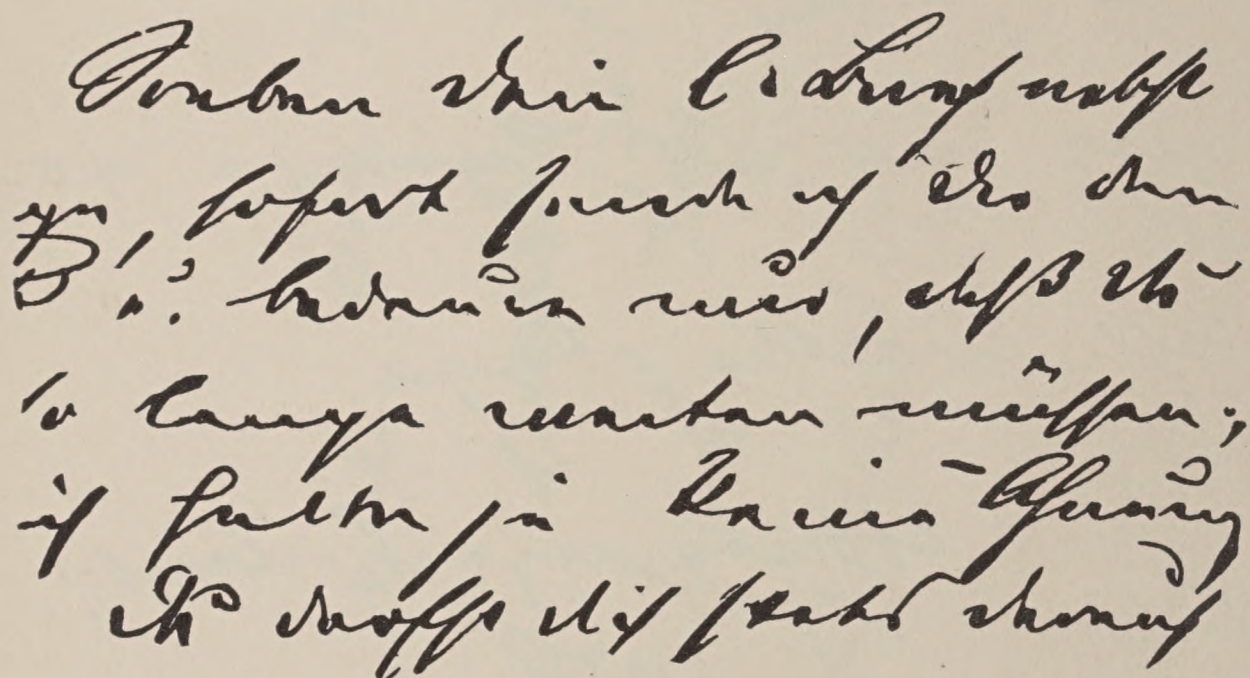 Soeben dein l. Brief nebst
sofort sende ich Dir den
u. bedaure nur, daß Du
so lange warten müssen;
ich hatte ja keine Ahnung
Du darfst dich stets darauf